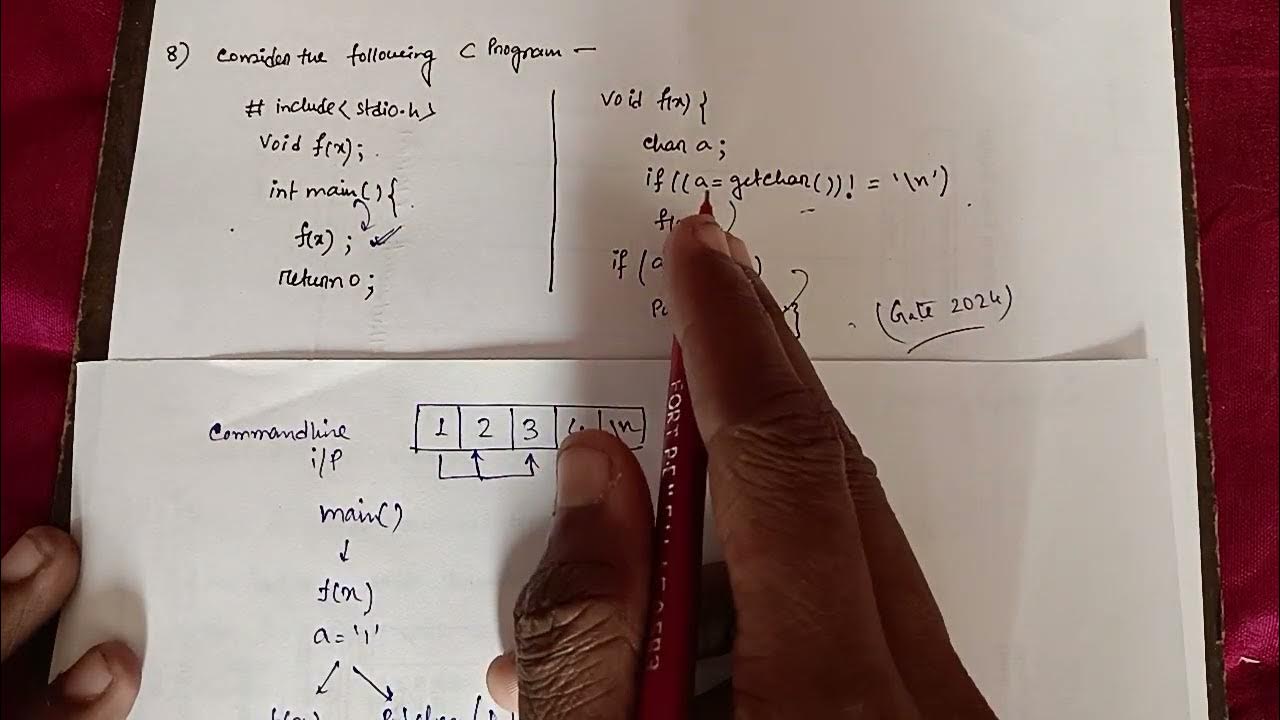 8) Consider the following C Program —
# include < stdio.h >
Void f(x);
int main() {
f(x);
return 0;
Void f(x) {
char a;
if ((a = getchar()) ! = '\n')
if (a
(Gate 2024)
Commandline
i/P
1 2 3 \n
main()
↓
f(x)
a = '1'
FORT